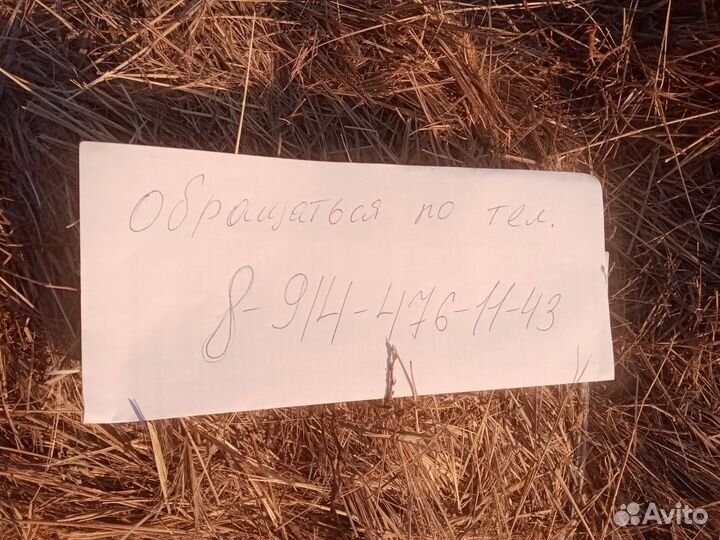 Обращаться по тел.
8-914-476-11-43
Avito